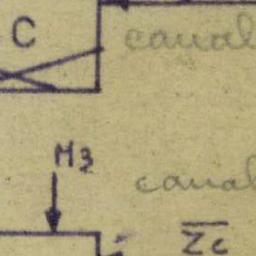 C canal
M3
canal
Zc